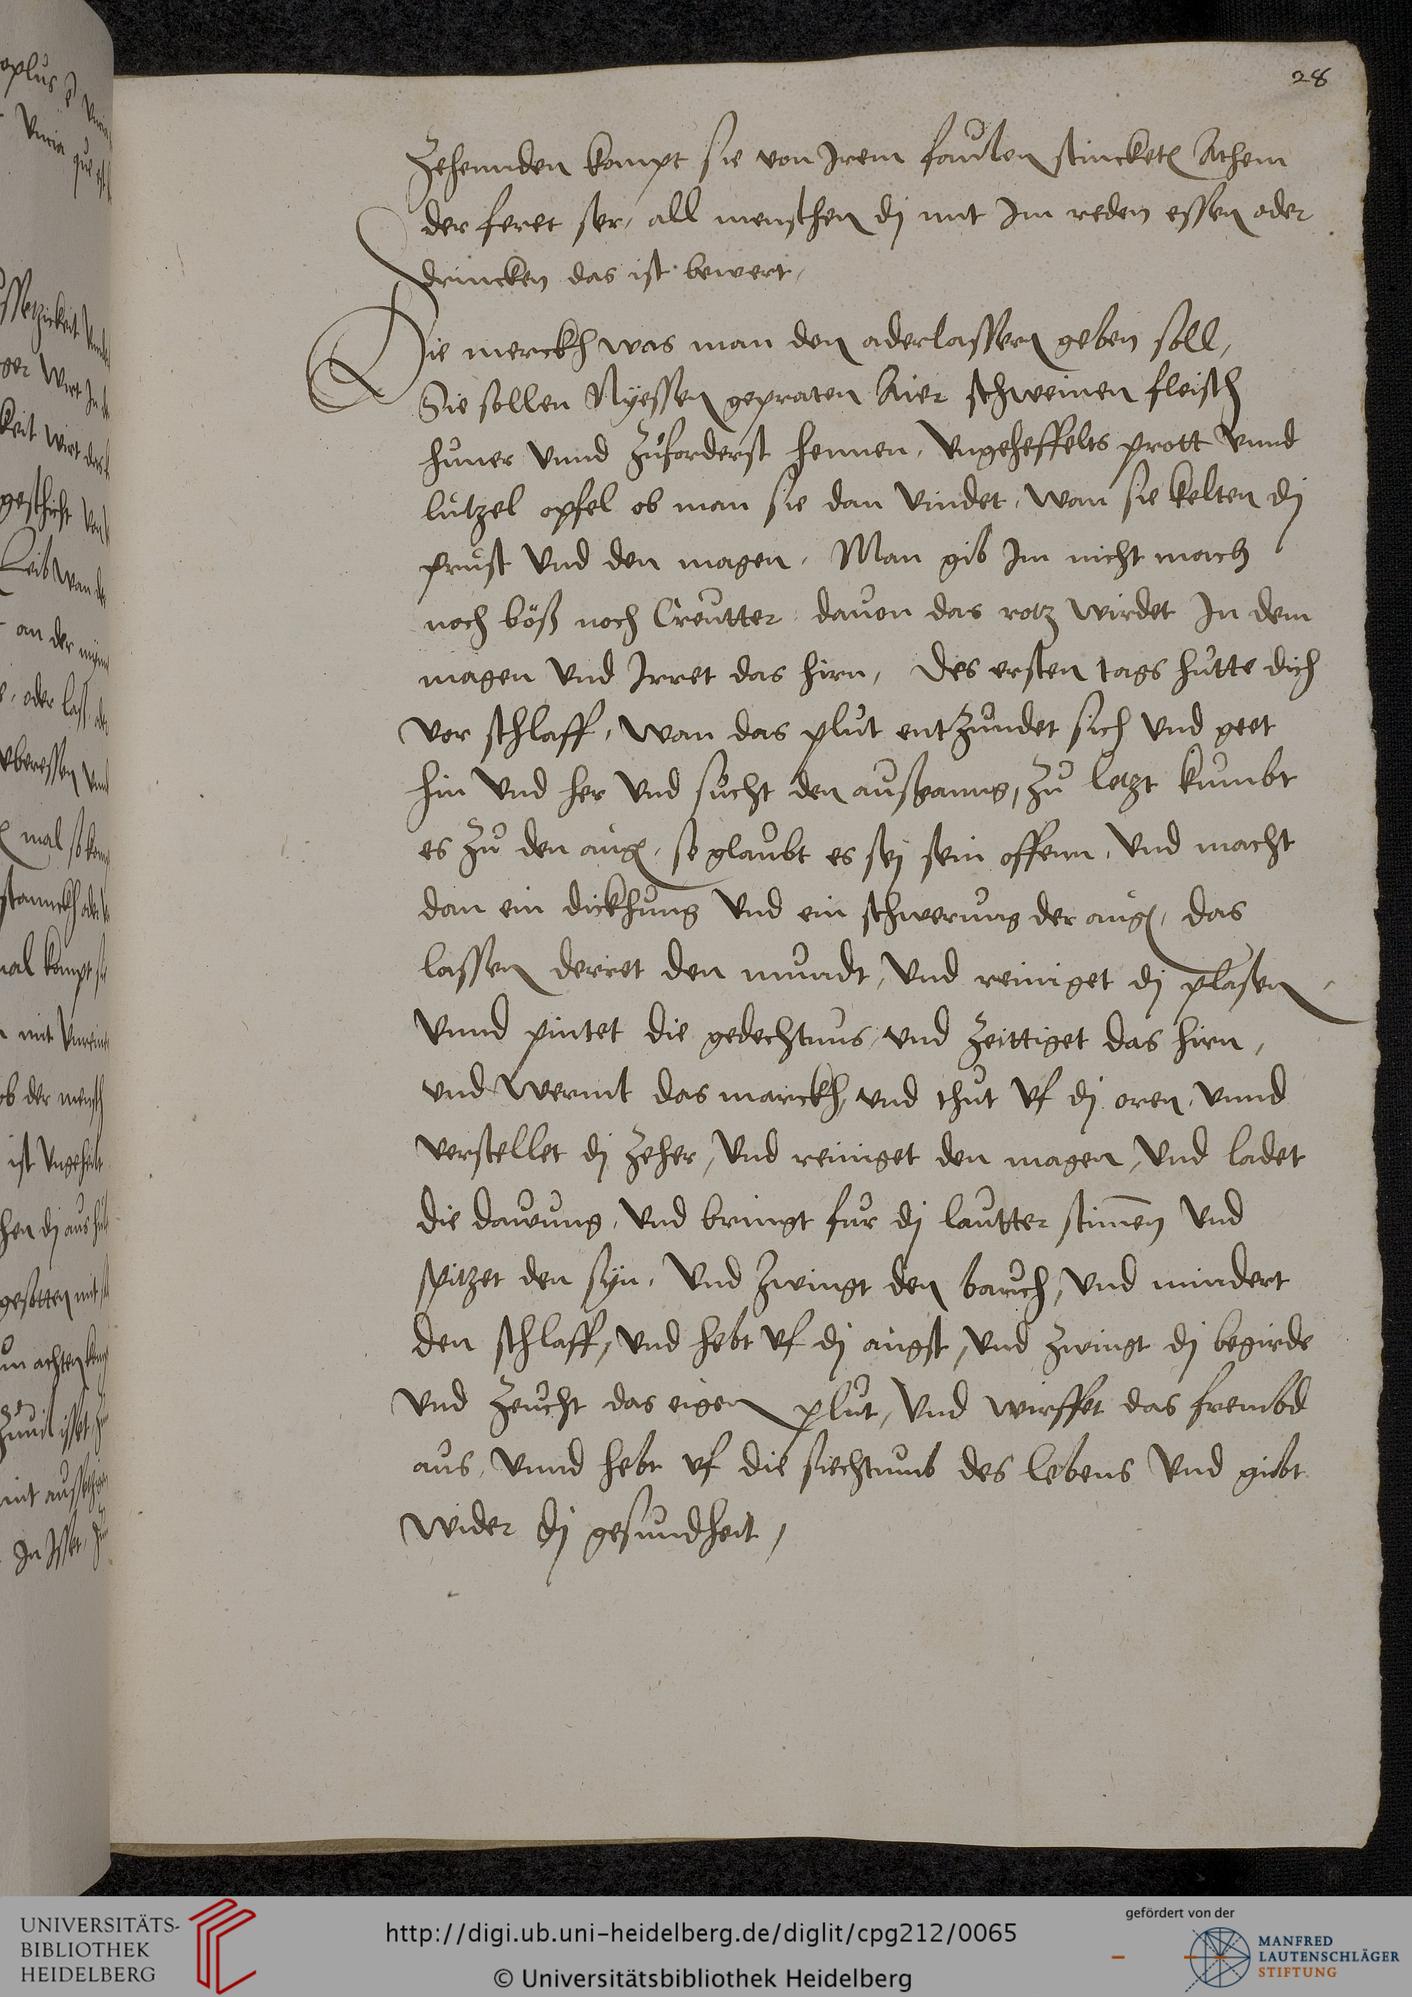 28
Zehennden kompt sie von Irem faulen stincketen Athem
der feret ser, all menschen dj mit Im reden essen oder
drincken das ist bewert,
Die merckh was man den aderlassern geben soll,
Sie sollen Nyessen gepraten Aier schweinen fleisch
huner vnnd zuforderst hennen, vngeheffelts prott vnnd
lutzel opfel ob man sie dan vindet, wan sie kelten dj
prust vnd den magen, Man gib Im nicht mach
noch böß noch Creutter dauon das rotz wirdet In dem
magen vnd Irret das hirn, des ersten tags hutte dich
vor schlaff, wan das plut entzundet sich vnd geet
hin vnd her vnd sucht den außganng, zu letzt kumbt
es zu den augen, so glaubt es sej sein offenn, vnd macht
dan ein dickhung vnd ein schwerung der augen, das
lassen derret den mundt, vnd reiniget dj plasen
vnnd pintet die gedechtnus, vnd zeittiget das hirn,
vnd wermt das marckh, vnd thut vf dj oren, vnnd
verstellet dj zeher, vnd reiniget den magen, vnd ladet
die dawung, vnd bringt fur dj lautter stimen vnd
spitzet den syn, vnd zwingt den bauch, vnd mindert
den schlaff, vnd hebt vf dj angst, vnd zwingt dj begirde
vnd zeucht das eigen plut, vnd wirffet das frembd
aus, vnnd hebt vf die siechtumb des lebens vnd gibt
wider dj gesundheit,
UNIVERSITÄTS-
BIBLIOTHEK
HEIDELBERG
http://digi.ub.uni-heidelberg.de/diglit/cpg212/0065
© Universitätsbibliothek Heidelberg
gefördert von der
MANFRED
LAUTENSCHLÄGER
STIFTUNG